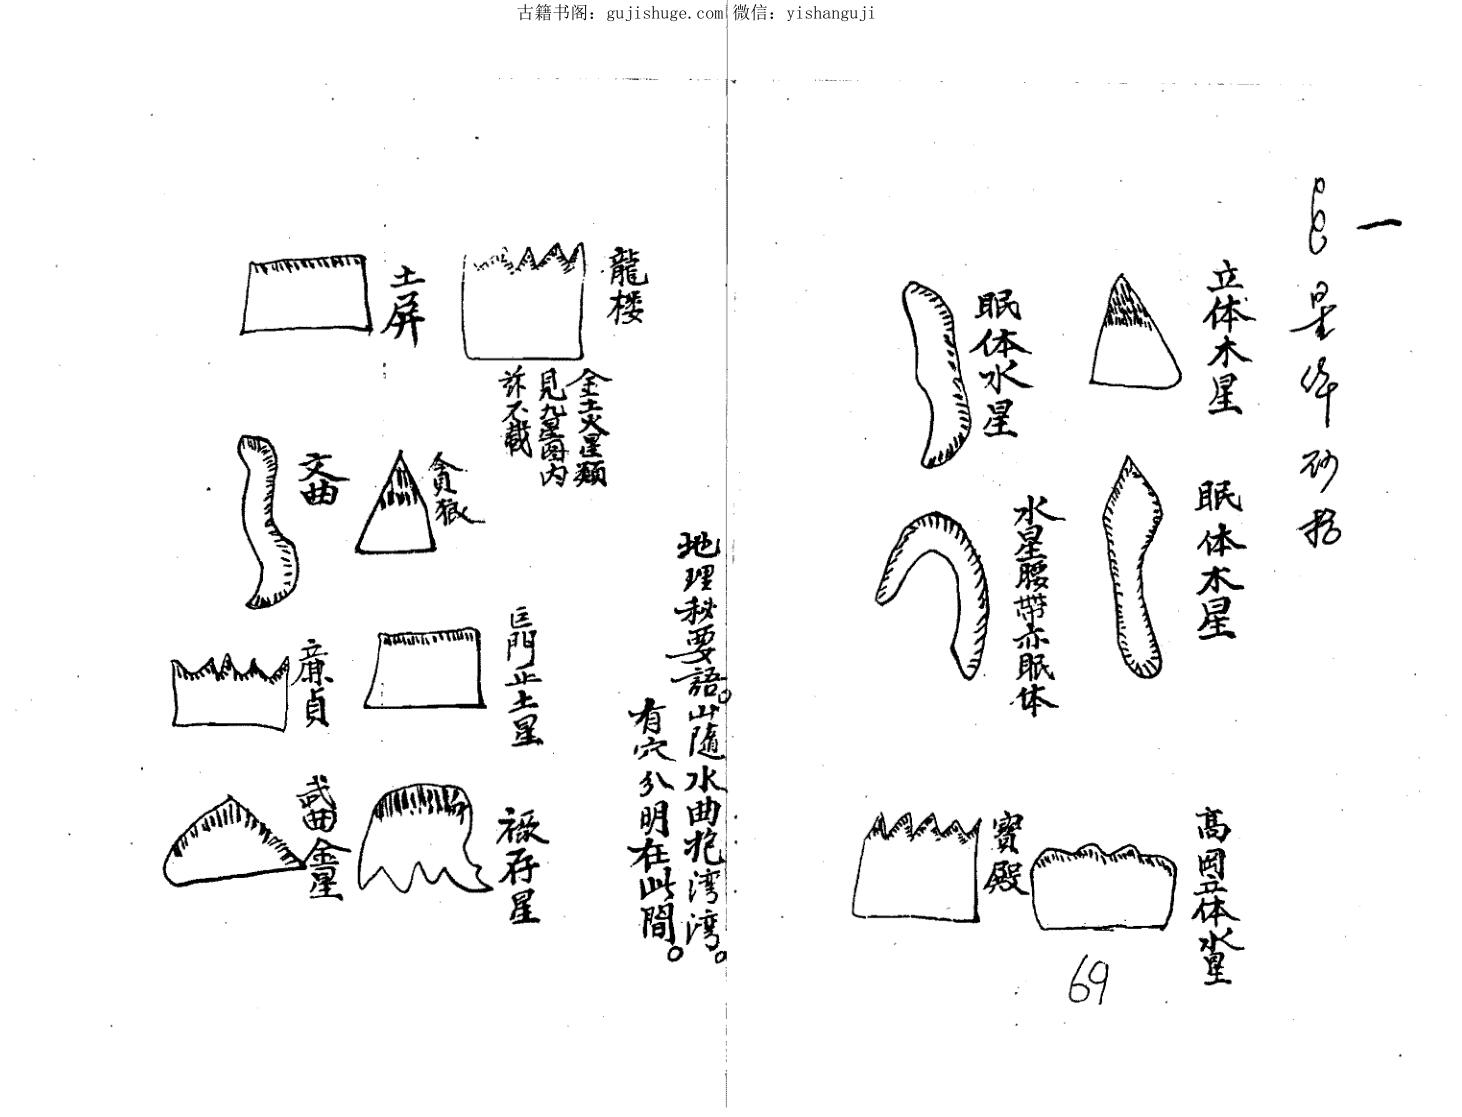 古籍书阁：gujishuge.com 微信：yishanguji
一
星 砂
立体木星
眠体水星
眠体木星
水星腰帶亦眠体
高岡立体水星
寶殿
69
地理秘要語。山隨水曲抱湾湾。
有穴分明在此間。
龍楼
金土火星類
見九星圖内
茲不載
土屏
貪狼
文曲
巨門正土星
廉貞
祿存星
武曲金星